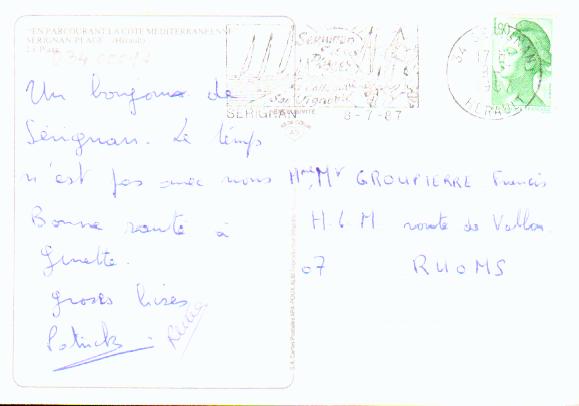 "EN PARCOURANT LA COTE MEDITERRANEENNE"
SERIGNAN-PLAGE (Hérault)
La Plage
Un bonjour de
Sérignan. Le temps
n'est pas avec nous
Bonne santé à
Ginette.
groses bises
Patrick
Sérignan
Plages
SERIGNAN 8-7-87
34 SERIGNAN
HERAULT
Mme, Mr GROUPIERRE Francis
H.L.M. route de Vallon
07 RUOMS